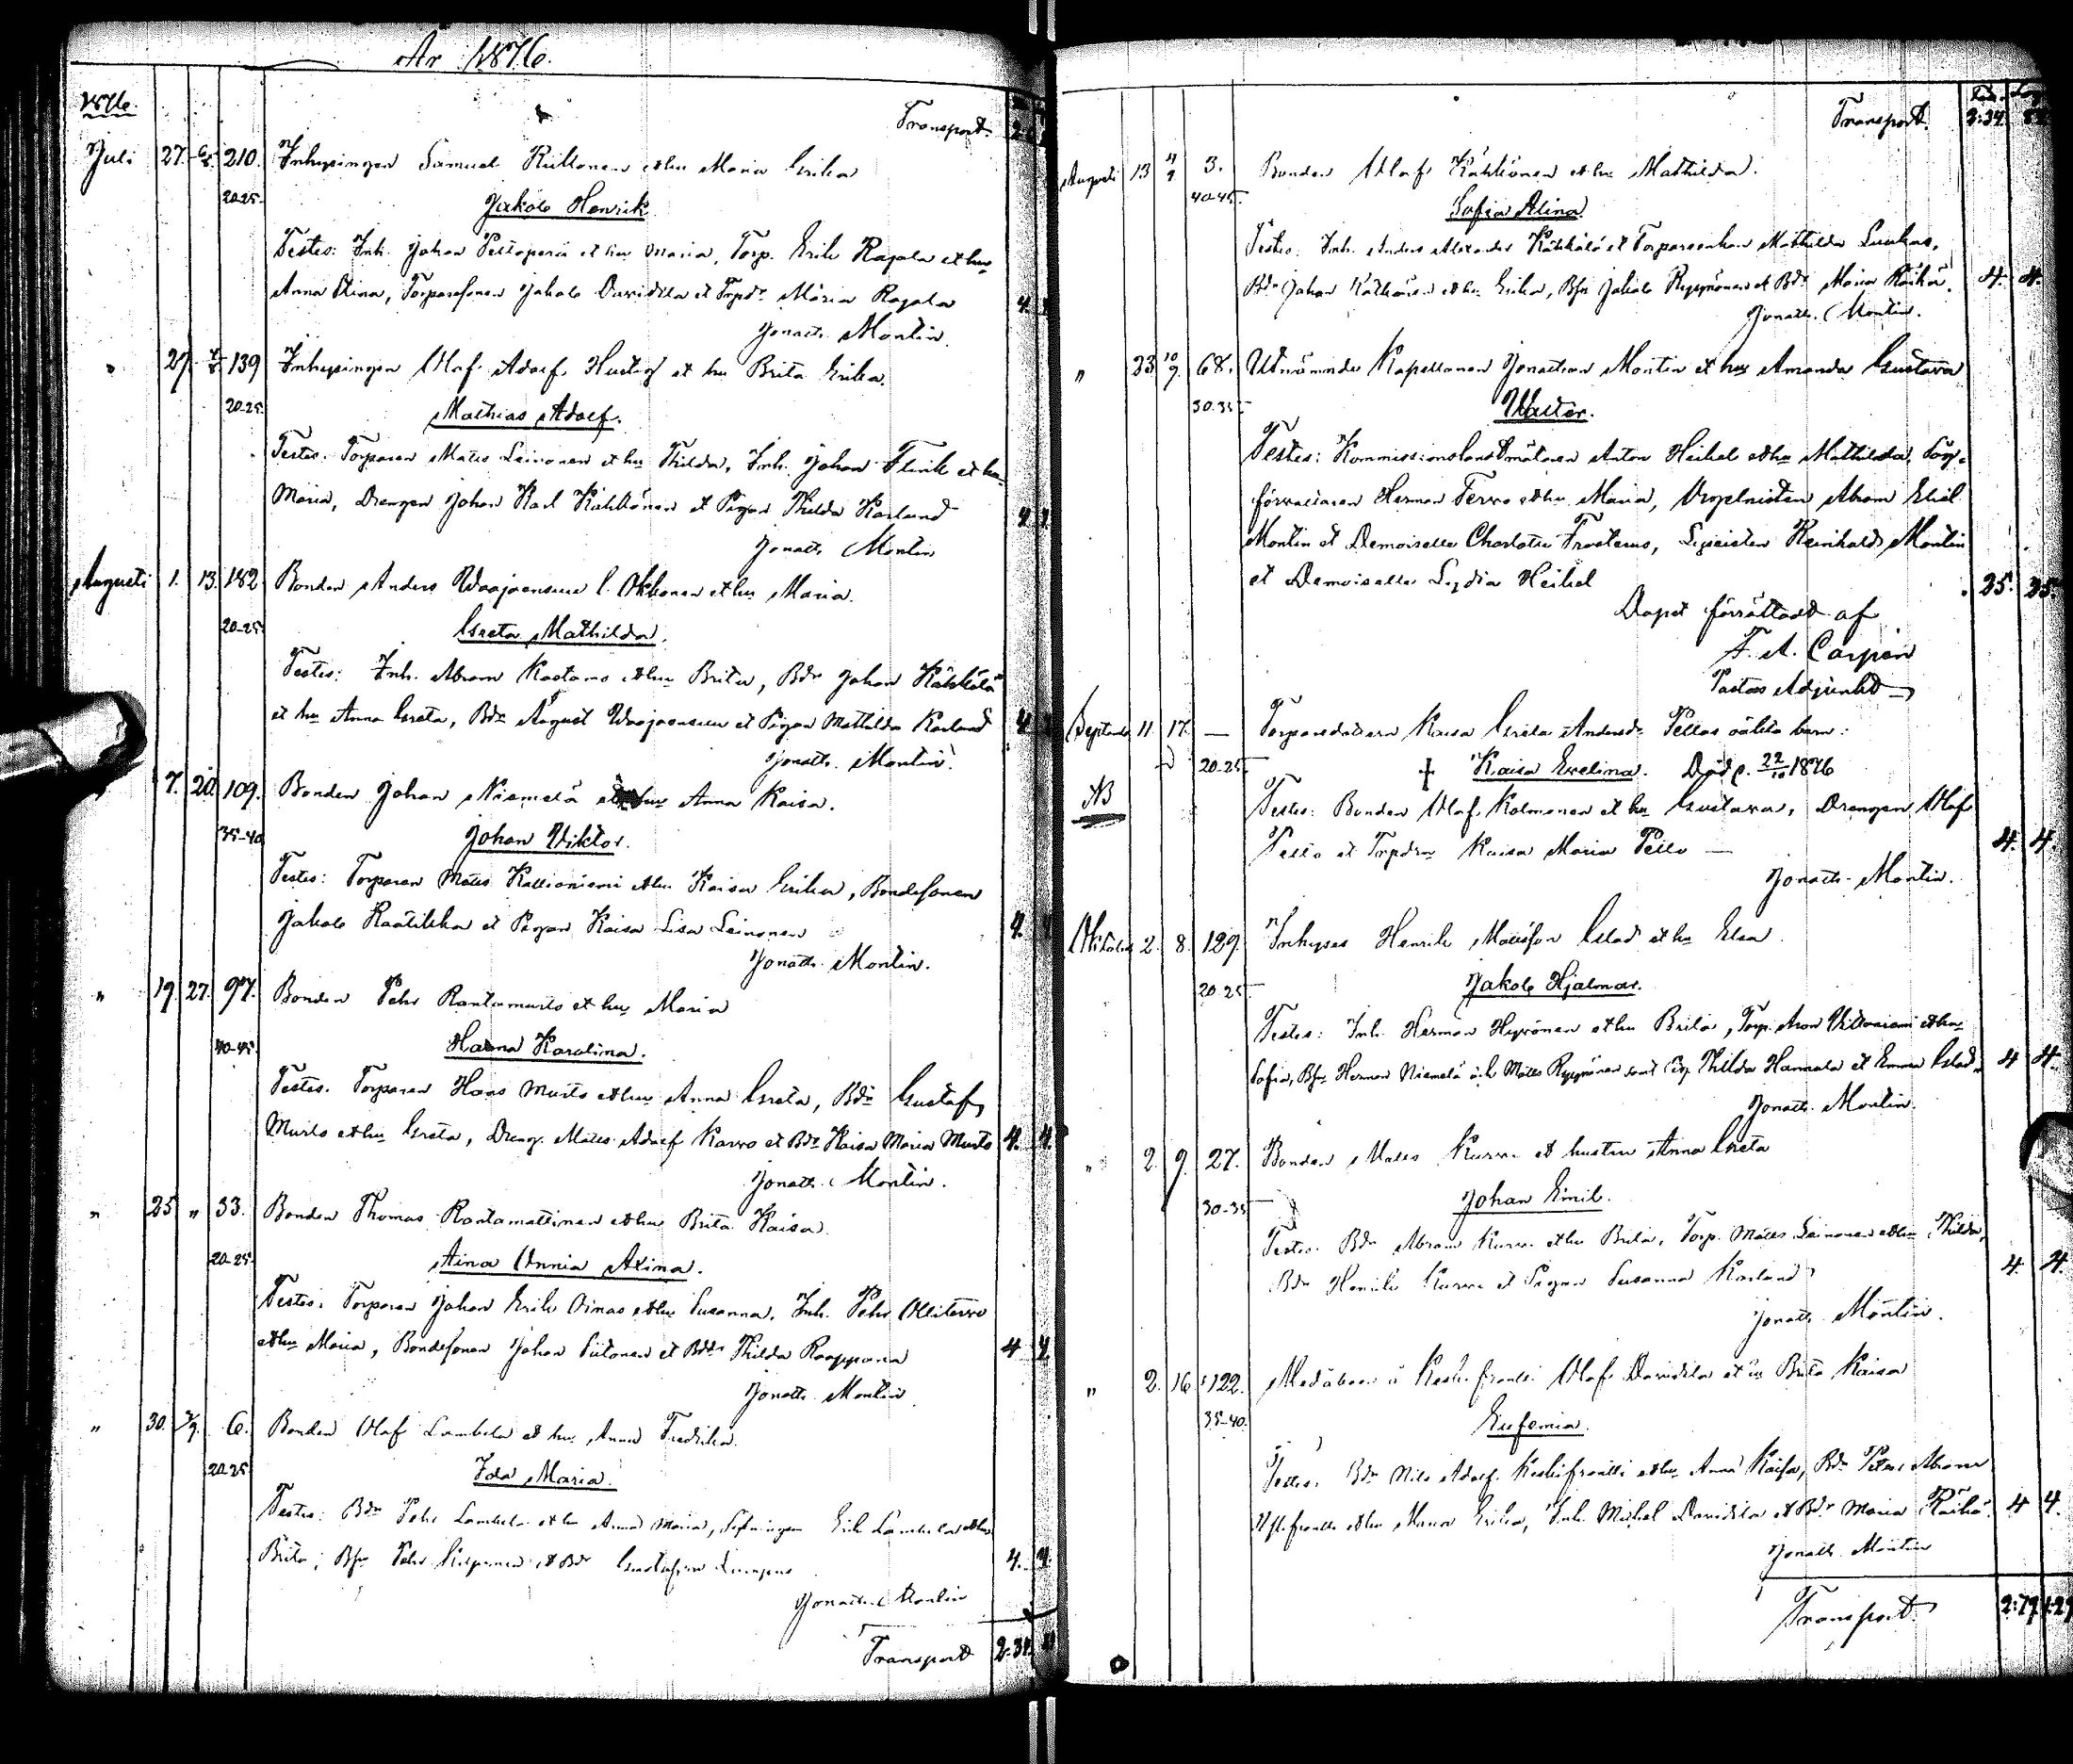 År 1876.
1876.
Transport.
Juli 27. 6/8. 210. Inhysingen Samuel Kultonen et hu Maria Erika
20-25. Jakob Henrik
Testes: Inh. Johan Peltoperä et hu Maria, Torp. Erik Rajala et hu
Anna Stina, Torparesonen Jakob Davidila et Torpdr Maria Rajala 4.
Jonath. Montin.
" 27. 139 Inhysingen Olof Adolf et hu Brita Erika.
20-25. Mathias Adolf.
Testes: Torparen Matts Leinonen et hu Thilda, Inh. Johan Flink et hu
Maria, Drengen Johan Karl Kähkönen et Pigan Thilda Karlund 4. 4.
Jonath. Montin
Augusti 1. 13. 182 Bonden Anders et hu Maria.
20-25. Greta Mathilda.
Testes: Inh. Abram Kastamo et hu Brita, Bdn Johan Kähkölä
et hu Anna Greta, Bdn August et Pigan Mathilda Karlund 4
Jonath. Montin.
7. 20. 109. Bonden Johan Niemelä et hu Anna Kaisa.
35-40 Johan Viktor.
Testes: Torparen Matts Kallioniemi et hu Kaisa Erika, Bondesonen
Jakob Raatikka et Pigan Kaisa Lisa Leinonen 4. 4
Jonath. Montin.
" 19. 27. 97. Bonden Pehr Rantamurto et hu Maria
40-45. Hanna Karolina.
Testes. Torparen Hans Murto et hu Anna Greta, Bdn Gustaf
Murto et hu Greta, Dreng. Matts Adolf Karvo et Bdr Kaisa Maria Murto 4. 4.
Jonath. Montin.
" 25 " 33. Bonden Thomas Rantamattinen et hu Brita Kaisa.
20-25. Aina Annia Axina.
Testes: Torparen Johan Erik Oimas et hu Susanna. Inh. Pehr Ollitervo
et hu Maria, Bondesonen Johan Piitonen et Bdr Thilda Raappana 4 4
Jonath. Montin
" 30. 3/9. 6. Bonden Olof Lambela et hu Anna Fredrika.
20-25 Ida Maria.
Testes: Bdn Pehr Lambela et hu Anna Maria, Erik Lambela et hu
Brita, Bsn Pehr et Bdr 4. 4.
Jonath. Montin
Transport 2:34.
Transport. 2:34.
Augusti 13 3. Bonden Olof Kähkönen et hu Mathilda.
40-45. Sofia Alina
Testes: Inh. Anders Alexander Kähkölä et Torpareenkan Mathilda Luukas,
Bdn Johan Kähkönen et hu Erika, Bsn Jakob Ryynänen et Bdr Maria Räihä. 4. 4.
Jonath. Montin.
" 23 10/9. 68. Utnämnde Kapellanen Jonathan Montin et hu Amanda Gustava
30-35 Walter.
Testes: Kommissionslandtmätaren Anton Heikel et hu Mathilda, Såg-
förvaltaren Herman Tervo et hu Maria, Orgelnisten Abram Eliel
Montin et Demoiselle Charlotte Frosterus, Lyceisten Reinhold Montin
et Demoiselle Lydia Heikel 35. 35.
Dopet förrättadt af
F. A. Carpén
Pastors Adjunkt
September 11. 17. — Torparedottern Kaisa Greta Andersdr Pellos oäkta barn:
20-25 † Kaisa Evelina. Död d. 22/10 1876
NB Testes: Bonden Olof Kolmonen et hu Gustava, Drengen Olof
Pello et Torpdrn Kaisa Maria Pello — 4. 4
Jonath. Montin.
Oktober 2. 8. 129. Inhyses Henrik Mattsson Glad et hu Elsa
20-25 Jakob Hjalmar.
Testes: Inh. Herman Hyvönen et hu Brita, Torp. Aron et hu
Sofia, Bsn Herman Niemelä och Matts Ryynänen samt Pig. Thilda Hannula et Emma Glad. 4 4.
Jonath. Montin.
" 2. 9. 27. Bonden Matts Kurvi et hustru Anna Greta
30-35 Johan Emil.
Testes. Bdn Abram Kurvi et hu Brita, Torp. Matts Leinonen et hu Thilda,
Bdn Henrik Kurvi et Pigan Susanna Karlund 4. 4.
Jonath. Montin.
" 2. 16. 122. Medåboen å Olof Davidila et hu Brita Kaisa
35-40. Eufemia.
Testes. Bdn Nils Adolf et hu Anna Kaisa, Bdn Petter Abram
et hu Maria Erika, Inh. Mickel Davidila et Bdr Maria Räihä. 4 4.
Jonath. Montin
Transport 2:79